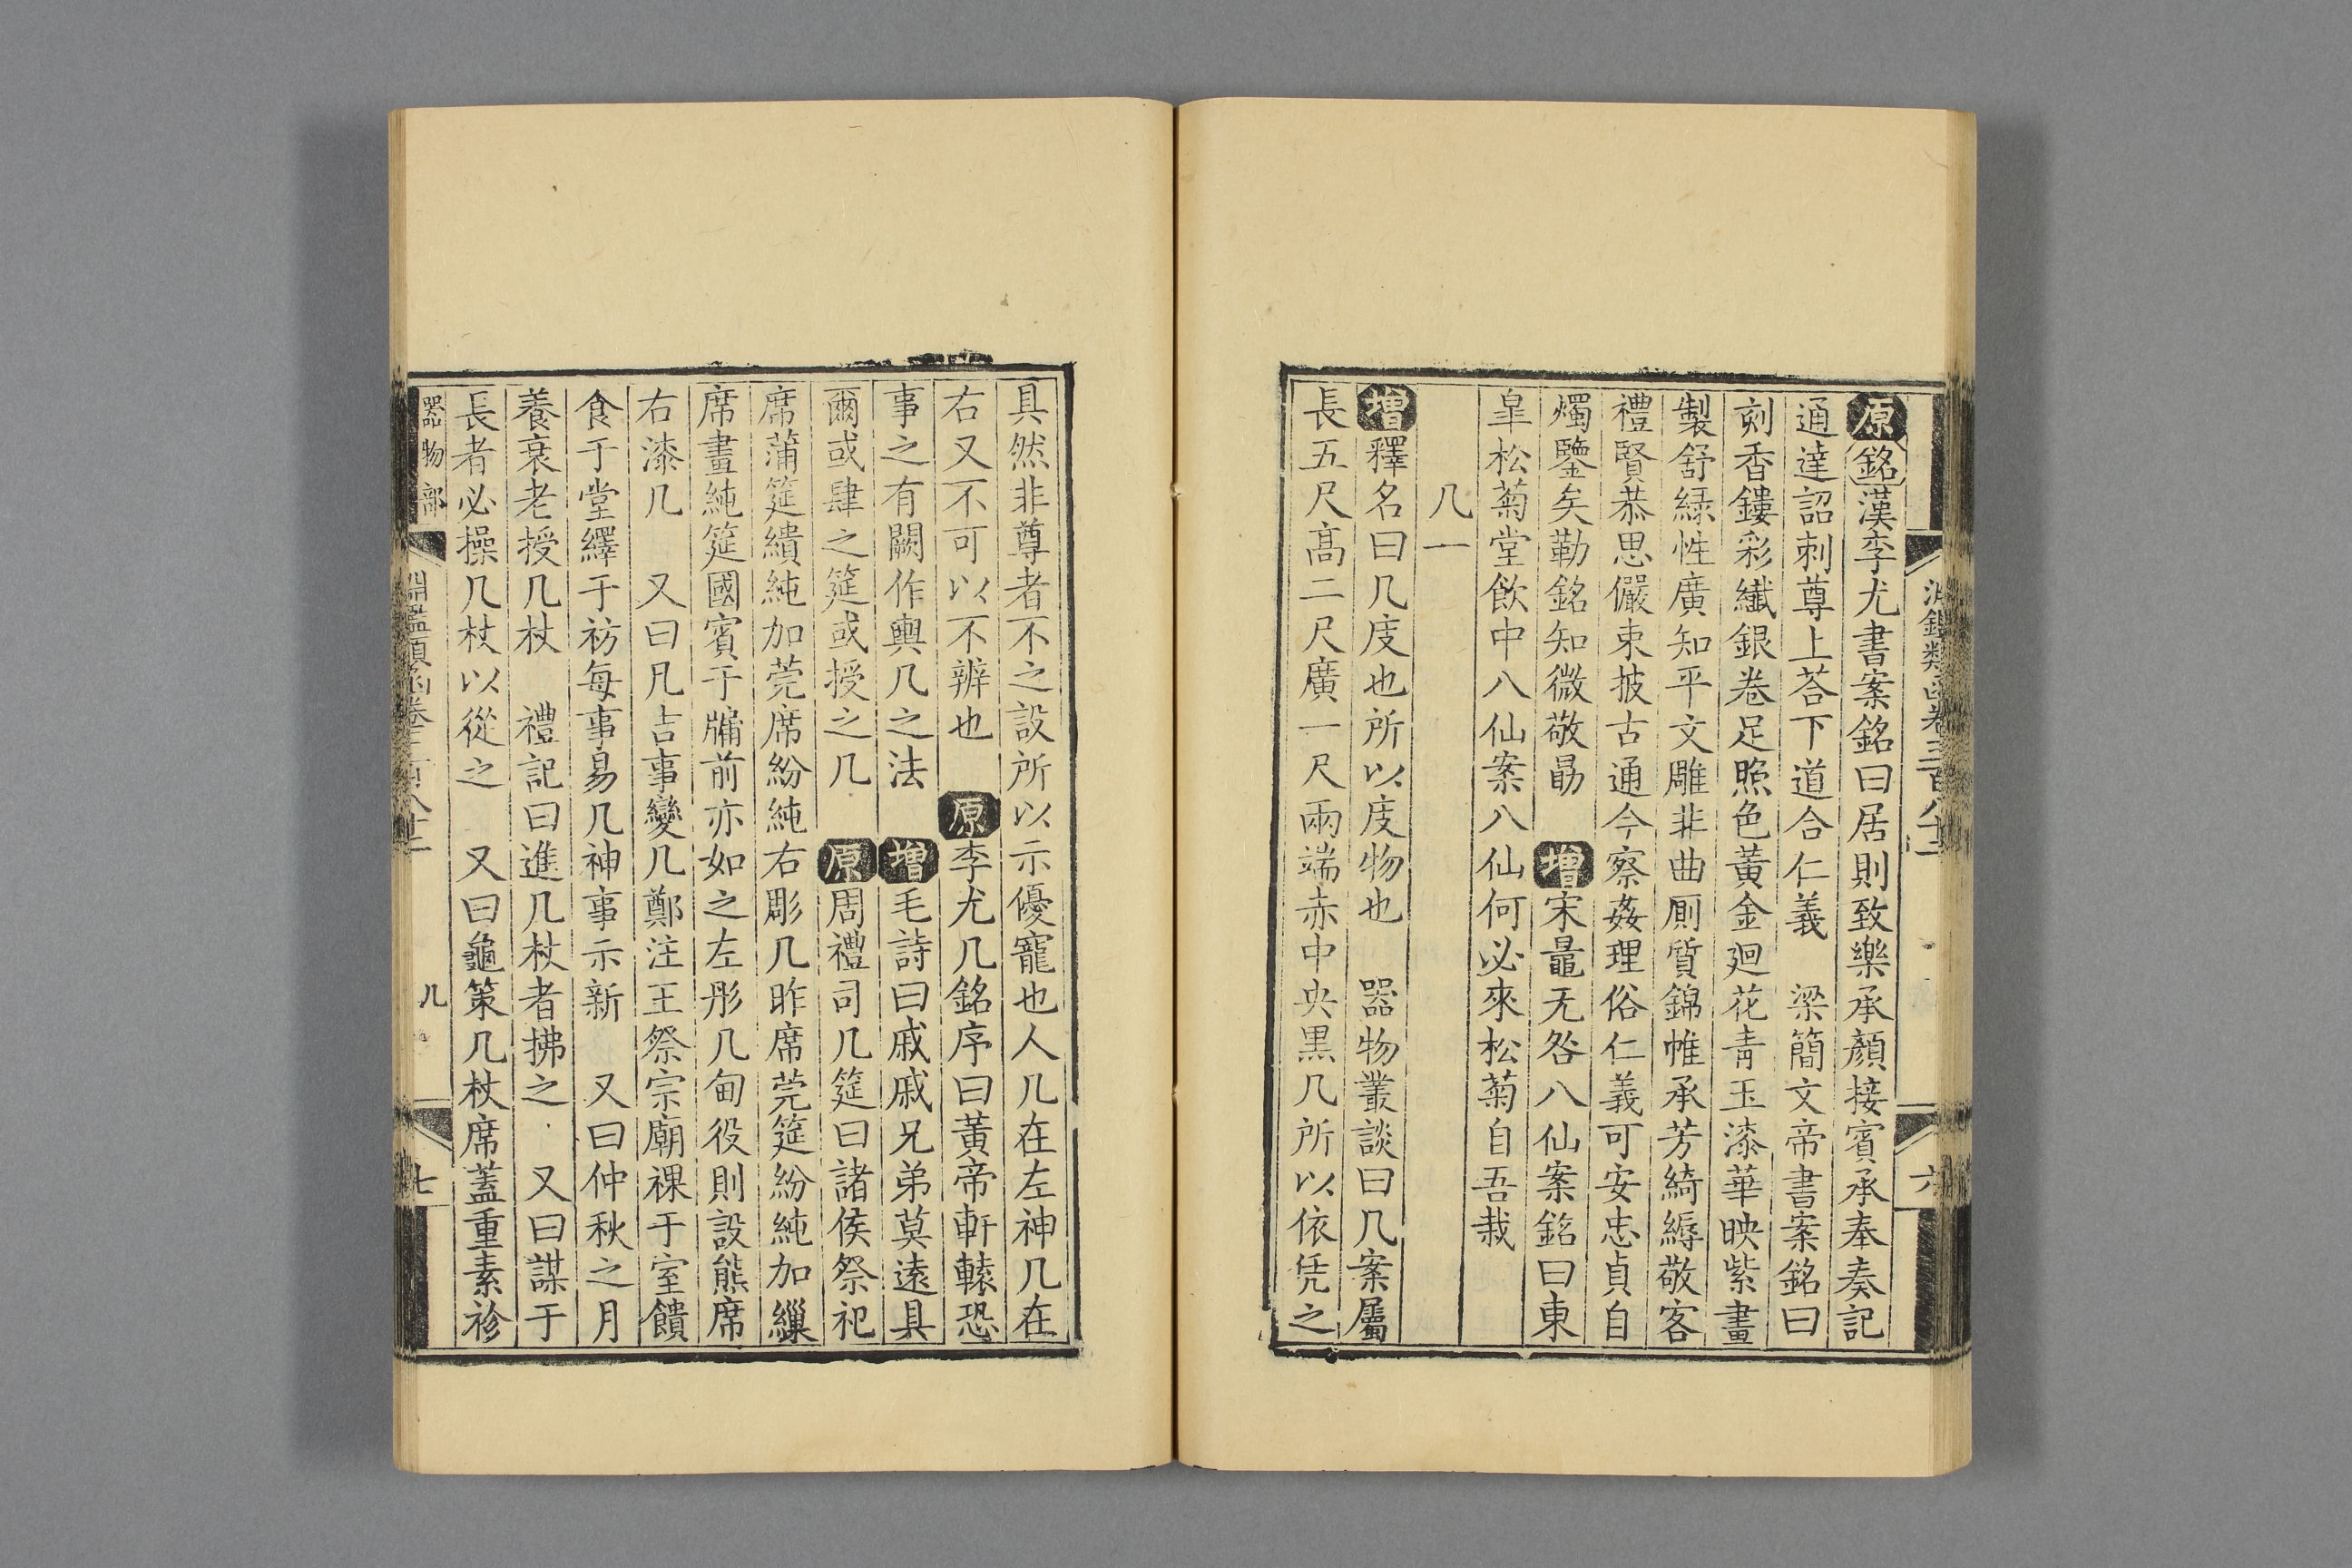 原銘漢李尤書案銘曰居則致樂承顏接賓承奉奏記
通達詔刺尊上荅下道合仁義　梁簡文帝書案銘曰
刻香鏤彩纎銀卷足照色黃金廻花青玉漆華映紫畫
製舒緑性廣知平文雕非曲厠質錦帷承芳綺縟敬客
禮賢恭思儼束披古通今察姦理俗仁義可安忠貞自
燭鑒矣勒銘知微敬勗　增宋鼂无咎八仙案銘曰東
臯松菊堂飲中八仙案八仙何必來松菊自吾栽
几一
增釋名曰几庋也所以庋物也　器物叢談曰几案屬
長五尺髙二尺廣一尺兩端赤中央黒几所以依凭之
具然非尊者不之設所以示優寵也人几在左神几在
右又不可以不辨也　原李尤几銘序曰黃帝軒轅恐
事之有闕作輿几之法　增毛詩曰戚戚兄弟莫逺具
爾或肆之筵或授之几　原周禮司几筵曰諸侯祭祀
席蒲筵繢純加莞席紛純右彫几昨席莞筵紛純加繅
席畫純筵國賓于牖前亦如之左彤几甸役則設熊席
右漆几　又曰凡吉事變几鄭注王祭宗廟祼于室饋
食于堂繹于祊每事易几神事示新　又曰仲秋之月
養衰老授几杖　禮記曰進几杖者拂之　又曰謀于
長者必操几杖以從之　又曰龜策几杖席蓋重素袗
器物部
淵鑑類函卷三百八十二
几
七
淵鑑類函卷三百八十二
六